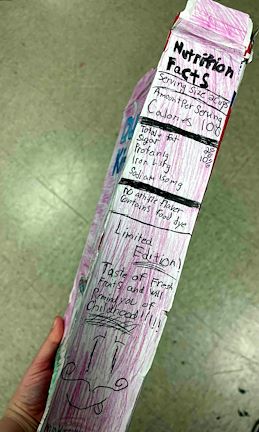 Nutrition
Facts
Serving Size 2cups
Amount Per Serving
Calories 100
Total Fat
Sugar
Protein
Iron
Sodium 150mg
no artific flaver
contains food dye
Limited
Edition!
Taste of Fresh
Fruits and will
Remind you of
Childhood!!!!